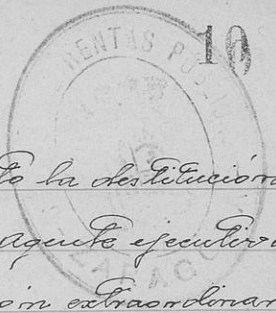 10
RENTAS PÚB
to la destitución
agente ejecutivo
ZARAGO
ón extraordinar